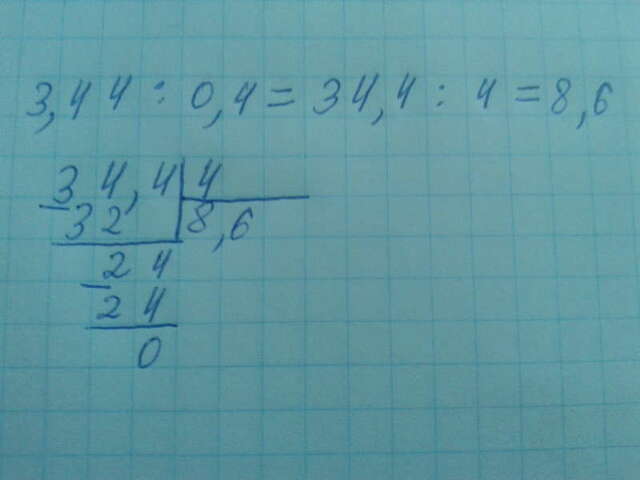 3,44 : 0,4 = 34,4 : 4 = 8,6
34,4 4
32 8,6
24
24
0